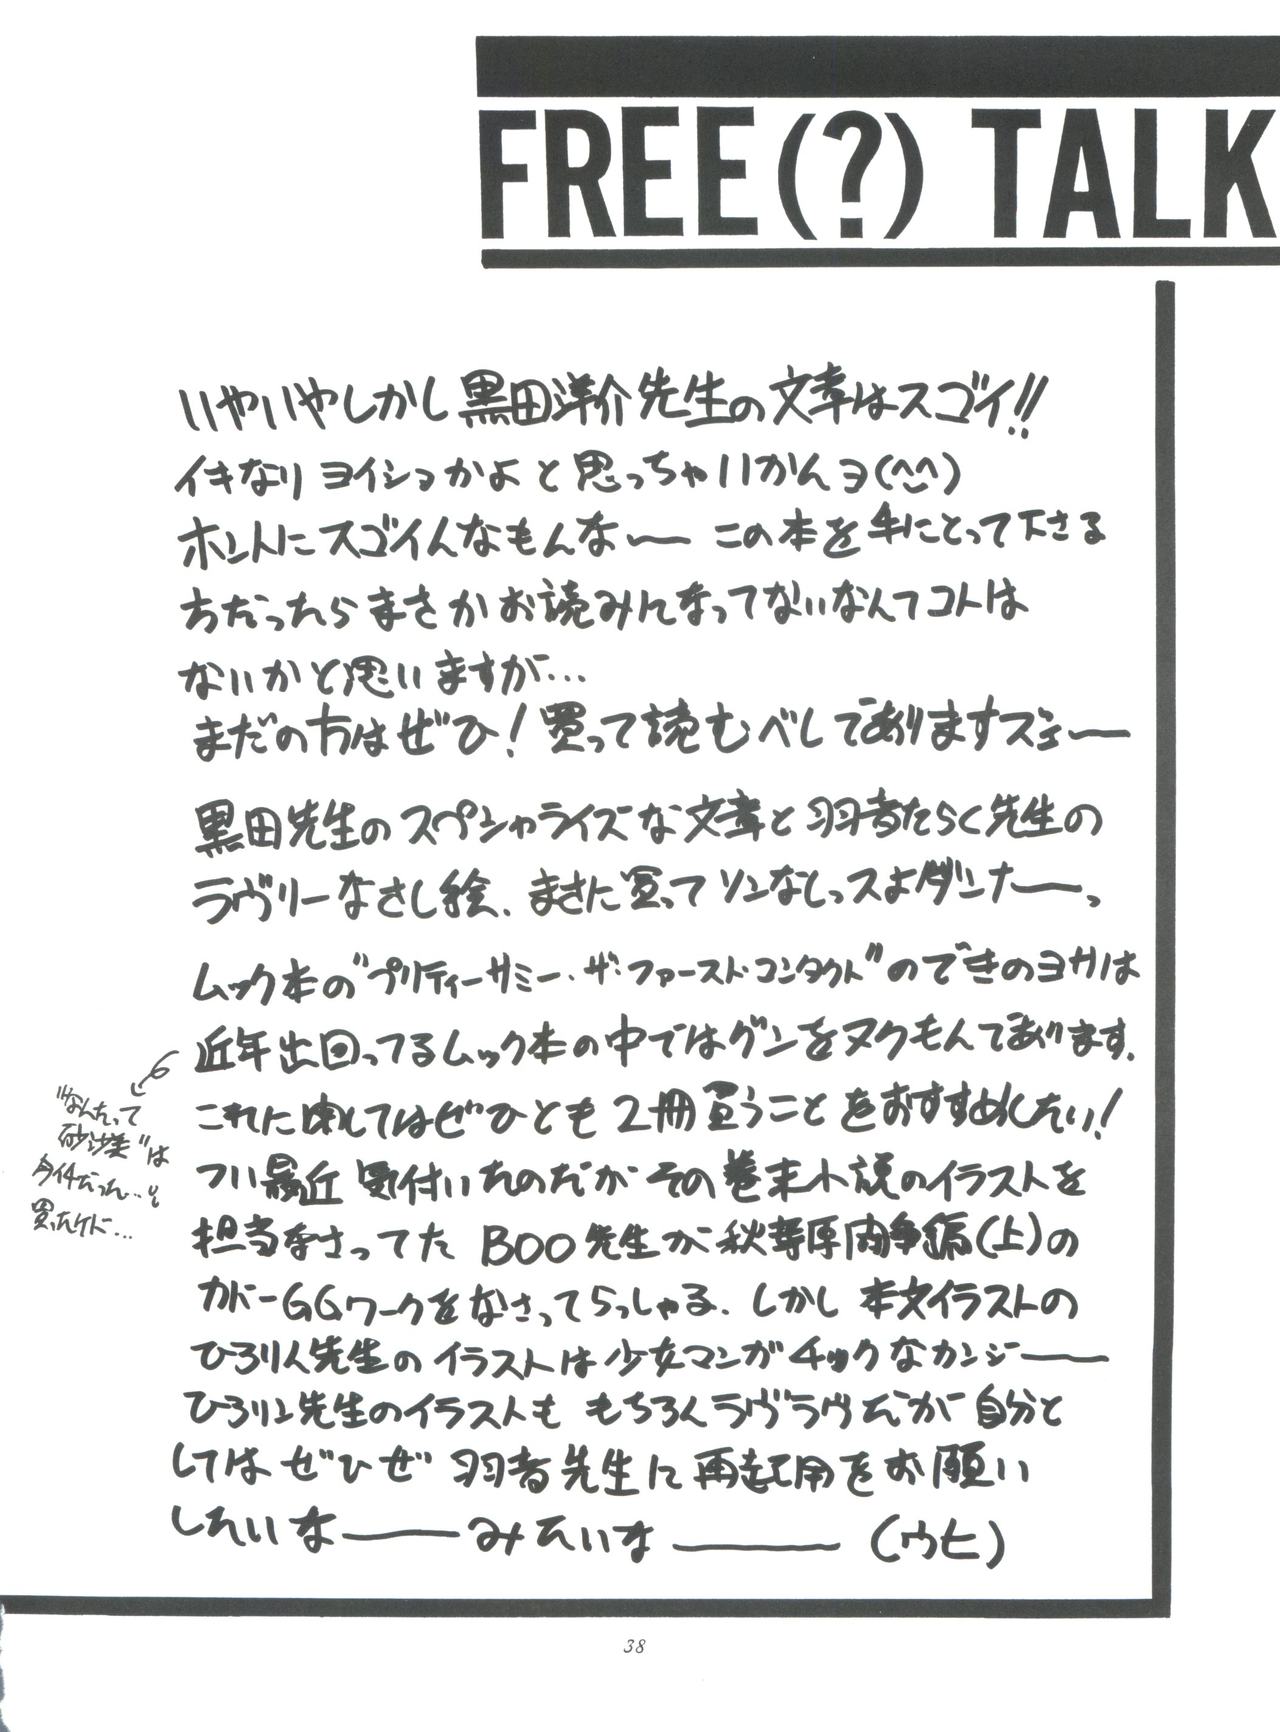 FREE(?) TALK
いやいやしかし黒田洋介先生の文章はスゴイ!!
イキなりヨイショかよと思っちゃいかんヨ(^^)
ホントにスゴイんなもんなー この本を手にとって下さる
方だったらまさかお読みんなってないなんてコトは
ないかと思いますが…
まだの方はぜひ!買って読むべしでありますズェー
黒田先生のスペシャライズな文章と羽者たらく先生の
ラヴリーなさし絵、まさに買ってソンなしっスよダンナーっ
ムック本の"プリティーサミー・ザ・ファースト・コンタクト"のできのヨサは
近年出回ってるムック本の中ではグンをヌクもんであります。
これに関してはぜひとも2冊買うことをおすすめしたい!
"なんたって
砂沙美"は
タイチだった…
買ったケド…
つい最近気付いたのだがその巻末小説のイラストを
担当なさってた BOO先生が秋葉原内争編(上)の
カバーGGワークをなさってらっしゃる。しかし本文イラストの
ひろりん先生のイラストは少女マンガチックなカンジー
ひろりん先生のイラストももちろんラヴラヴだが自分と
してはぜひぜひ羽者先生に再起用をお願い
したいなーーみたいなーー(ウヒ)
38